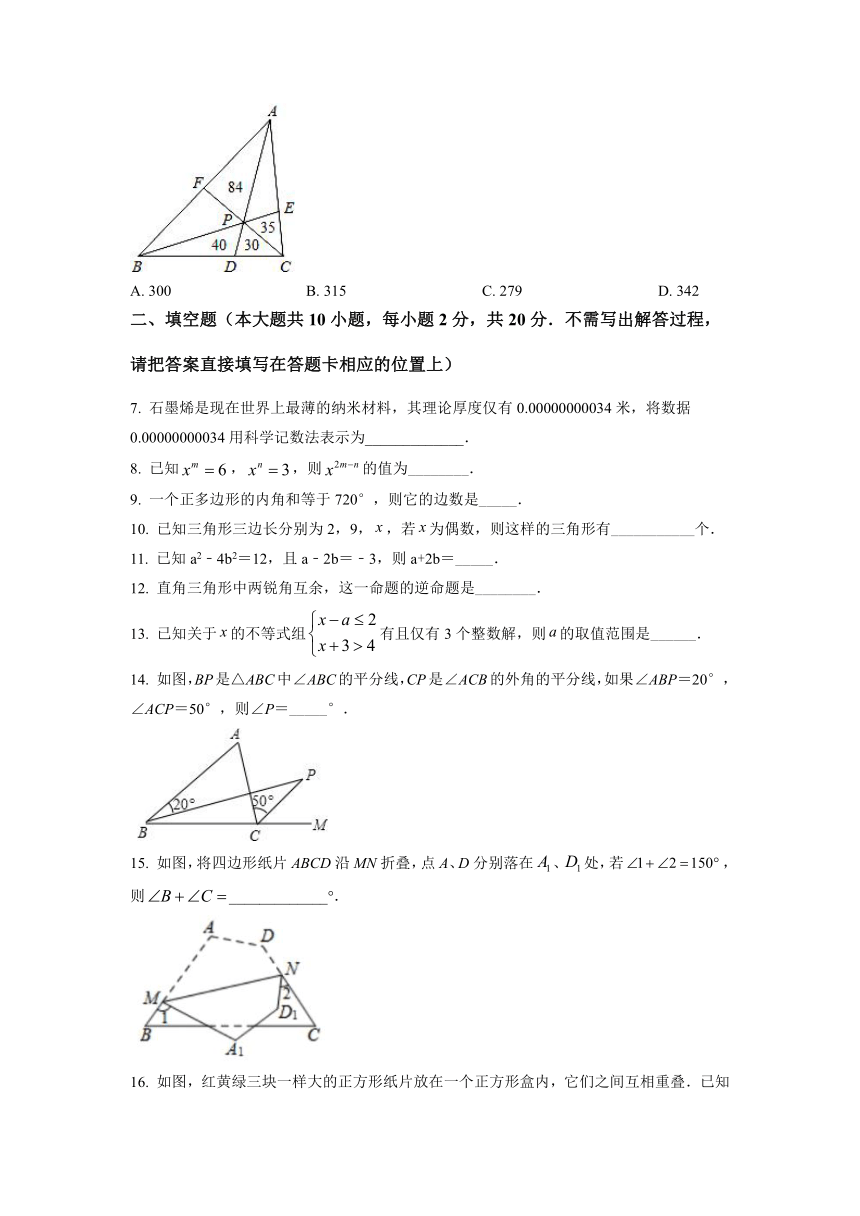 A
F
84
E
P
35
40
30
B
D
C
A. 300 B. 315 C. 279 D. 342
二、填空题（本大题共 10 小题，每小题 2 分，共 20 分．不需写出解答过程，
请把答案直接填写在答题卡相应的位置上）
7. 石墨烯是现在世界上最薄的纳米材料，其理论厚度仅有 0.00000000034 米，将数据
0.00000000034 用科学记数法表示为_____________．
8. 已知 xᵐ = 6，xⁿ = 3，则 x²ᵐ⁻ⁿ 的值为________．
9. 一个正多边形的内角和等于 720°，则它的边数是_____．
10. 已知三角形三边长分别为 2，9，x，若 x 为偶数，则这样的三角形有___________个．
11. 已知 a²﹣4b²＝12，且 a﹣2b＝﹣3，则 a+2b＝_____．
12. 直角三角形中两锐角互余，这一命题的逆命题是________．
13. 已知关于 x 的不等式组 { x − a ≤ 2
x + 3 > 4 有且仅有 3 个整数解，则 a 的取值范围是______．
14. 如图，BP 是△ABC 中∠ABC 的平分线，CP 是∠ACB 的外角的平分线，如果∠ABP＝20°，
∠ACP＝50°，则∠P＝_____°．
A
P
20°
50°
B
C
M
15. 如图，将四边形纸片 ABCD 沿 MN 折叠，点 A、D 分别落在 A₁、D₁ 处，若 ∠1 + ∠2 = 150°，
则 ∠B + ∠C =_____________°．
A
D
N
M
2
1
D₁
B
C
A₁
16. 如图，红黄绿三块一样大的正方形纸片放在一个正方形盒内，它们之间互相重叠．已知